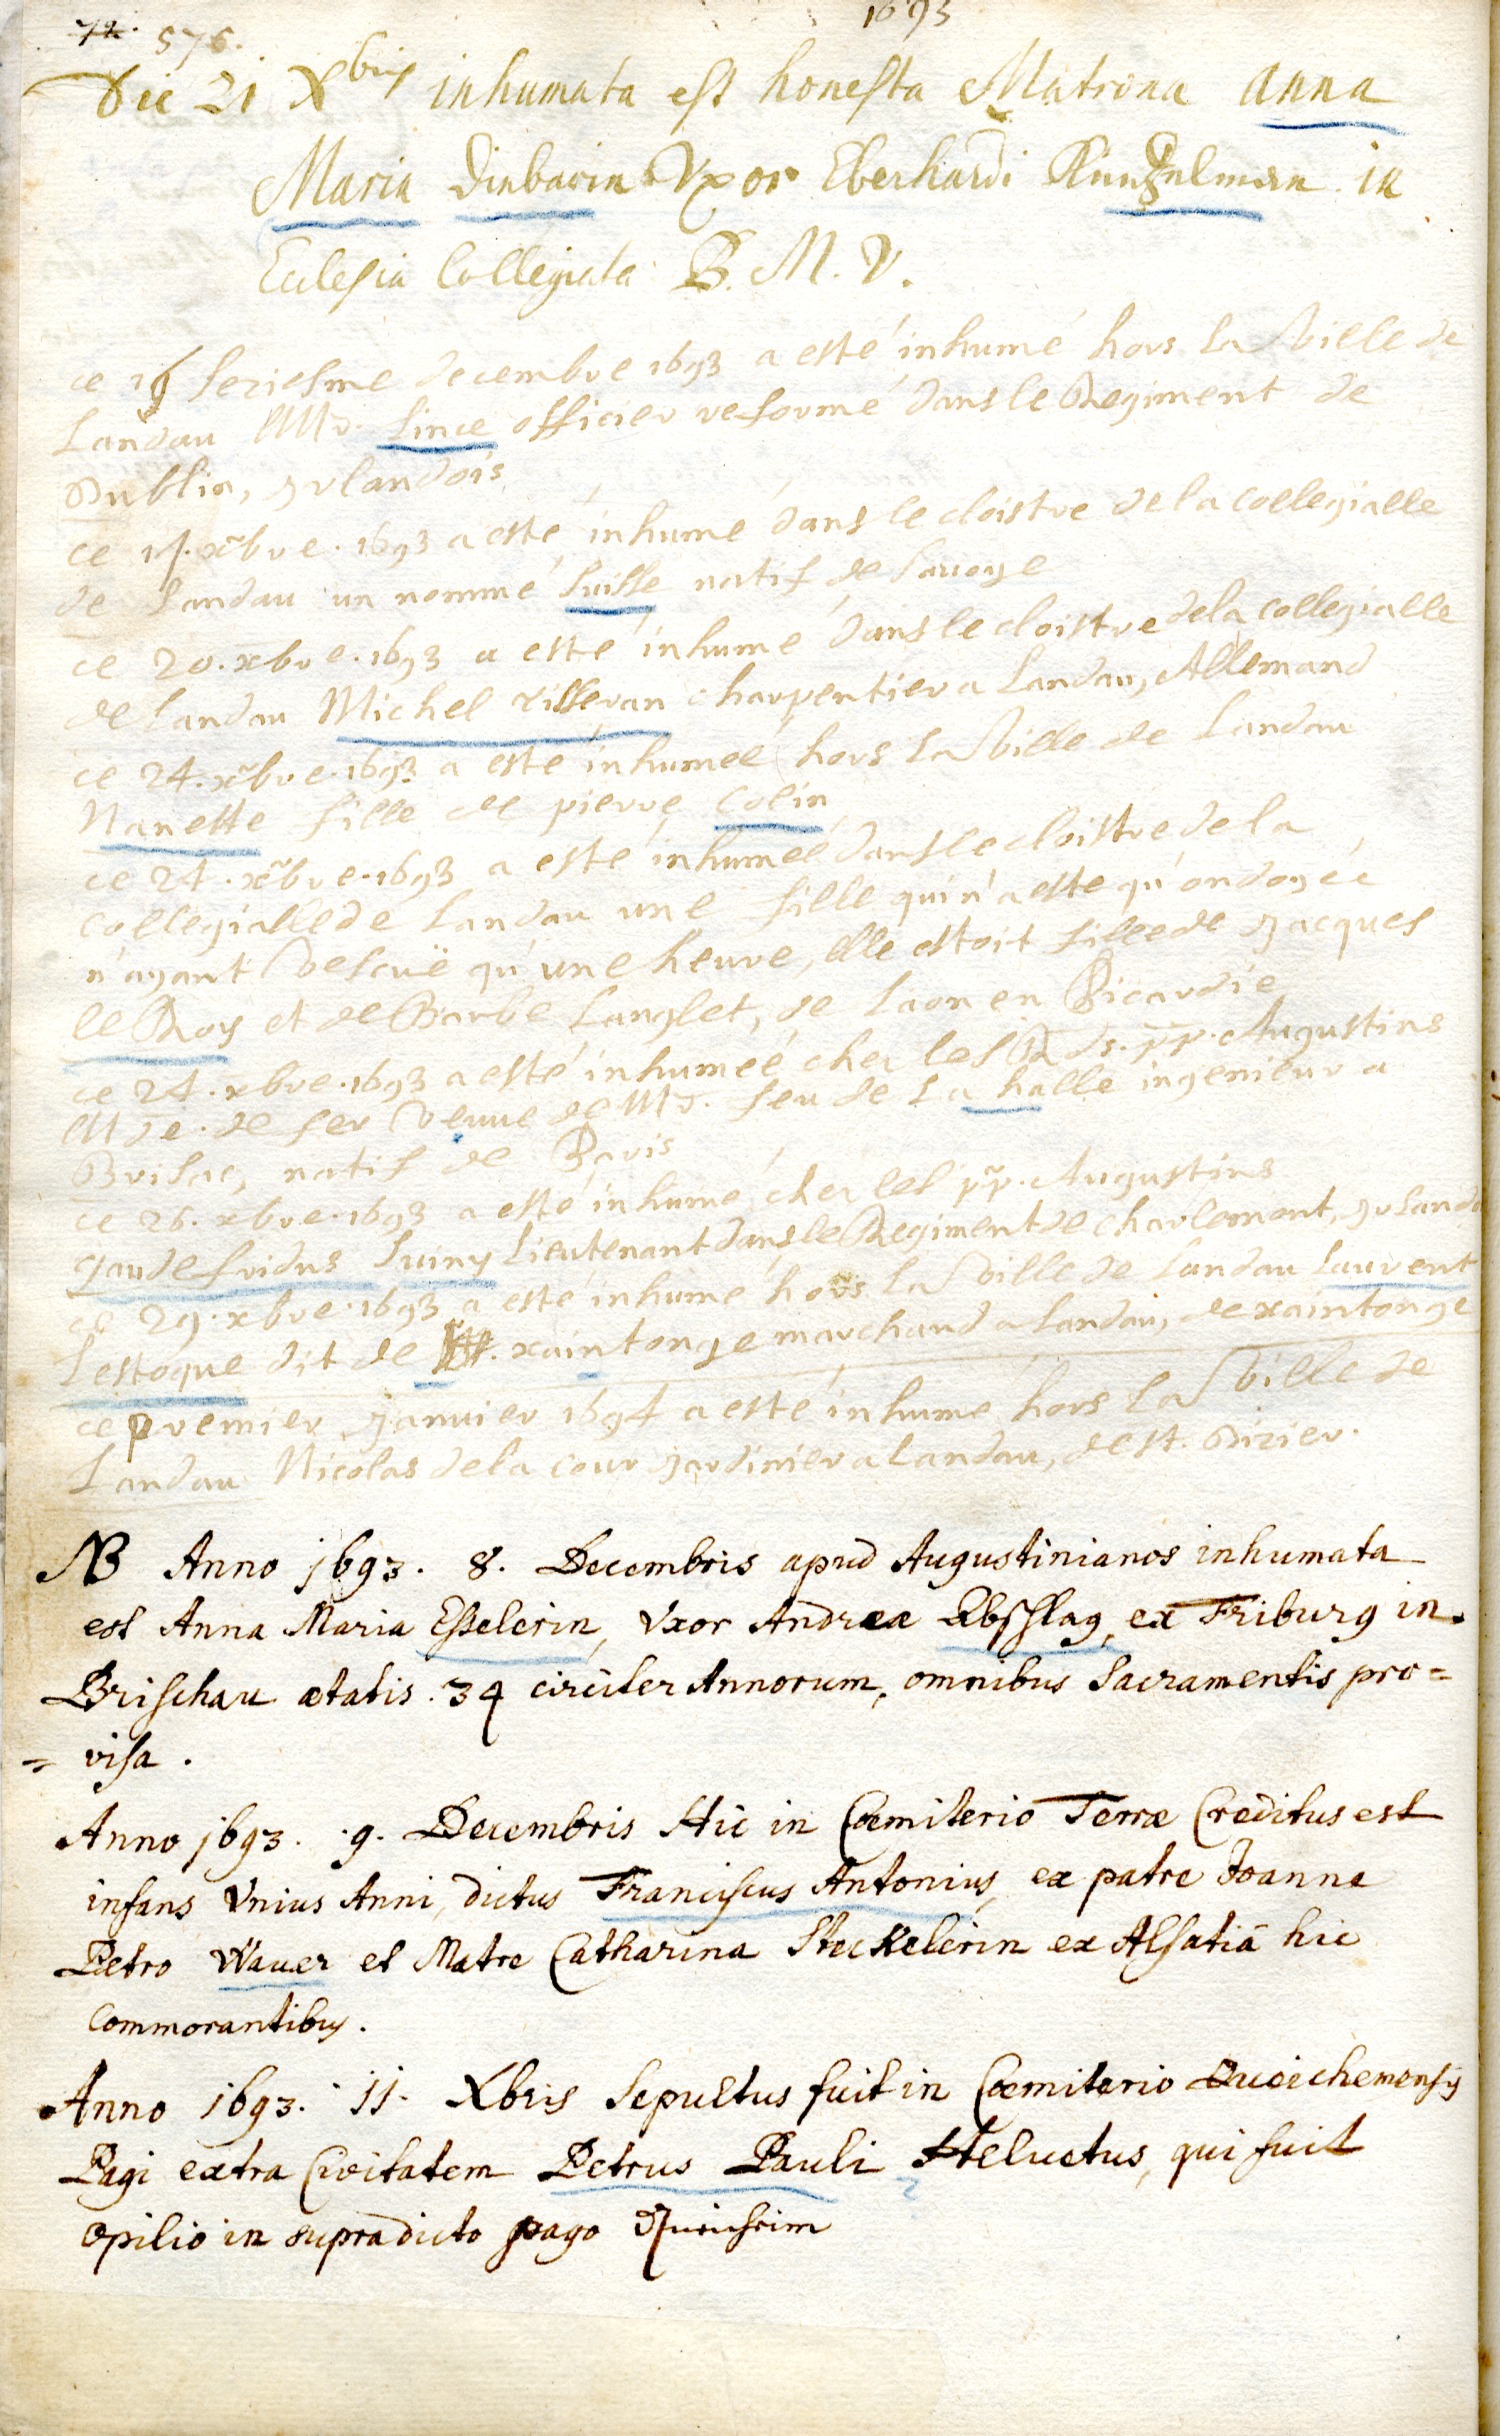 72. 576.
1693
Die 21 Xbris inhumata est honesta Matrona Anna
Maria Dinbarin Vxor Eberhardi Künzelman in
Ecclesia Collegiata B. M. V.
ce 16 seziesme decembre 1693 a esté inhumé hors La Ville de
Landau Mr. Since officier reformé dans le Regiment de
Dublin, yrlandois
ce 17. xbre. 1693 a esté inhumé dans le cloistre de la collegialle
de Landau un nommé Suisse natif de Savoye
ce 20. xbre. 1693 a esté inhumé dans le cloistre de la collegialle
de Landau Michel Zisseran charpentier a Landau, Allemand
ce 24. xbre. 1693 a esté inhumeé hors La Ville de Landau
Nanette fille de pierre Colin
ce 24. xbre. 1693 a esté inhumeé dans le cloistre de la
collegialle de Landau une fille qui n'a este qu'ondoyeé
n'ayant Vescuë qu'une heure, elle estoit fille de Jacques
le Roy et de Barbe Langlet, de Laon en Picardie
ce 24. xbre. 1693 a esté inhumeé chez les Rds. pp. Augustins
Mde. de fer Veuue de Mr. feu de La halle ingenieur a
Brisac, natif de Paris
ce 26. xbre. 1693 a esté inhumé chez les pp. Augustins
gaudefridus Suiny Lieutenant dans le Regiment de charlemont, yrland
ce 29. xbre. 1693 a esté inhumé hors La Ville de Landau Laurent
Lestoque dit de xaintonge marchand a Landau, de xaintonge
ce premier Janvier 1694 a esté inhumé hors La Ville de
Landau Nicolas de la cour Jardinier a Landau, de st. Dizier.
NB Anno 1693. 8. Decembris apud Augustinianos inhumata
est Anna Maria Eßelerin, Vxor Andreæ Abschlag, ex Friburg in
Brischau ætatis 34 circiter Annorum, omnibus Sacramentis pro=
= visa.
Anno 1693. 9. Decembris Hic in Cœmiterio Terræ Creditus est
infans Vnius Anni, dictus Franciscus Antonius, ex patre Joanne
Petro Wauer et Matre Catharina Steckelerin ex Alsatiâ hic
Commorantibus.
Anno 1693. 11. Xbris Sepultus fuit in Cœmiterio Queichemensis
Pagi extra Civitatem Petrus Pauli Helvetus, qui fuit
opilio in supradicto pago Queicheim